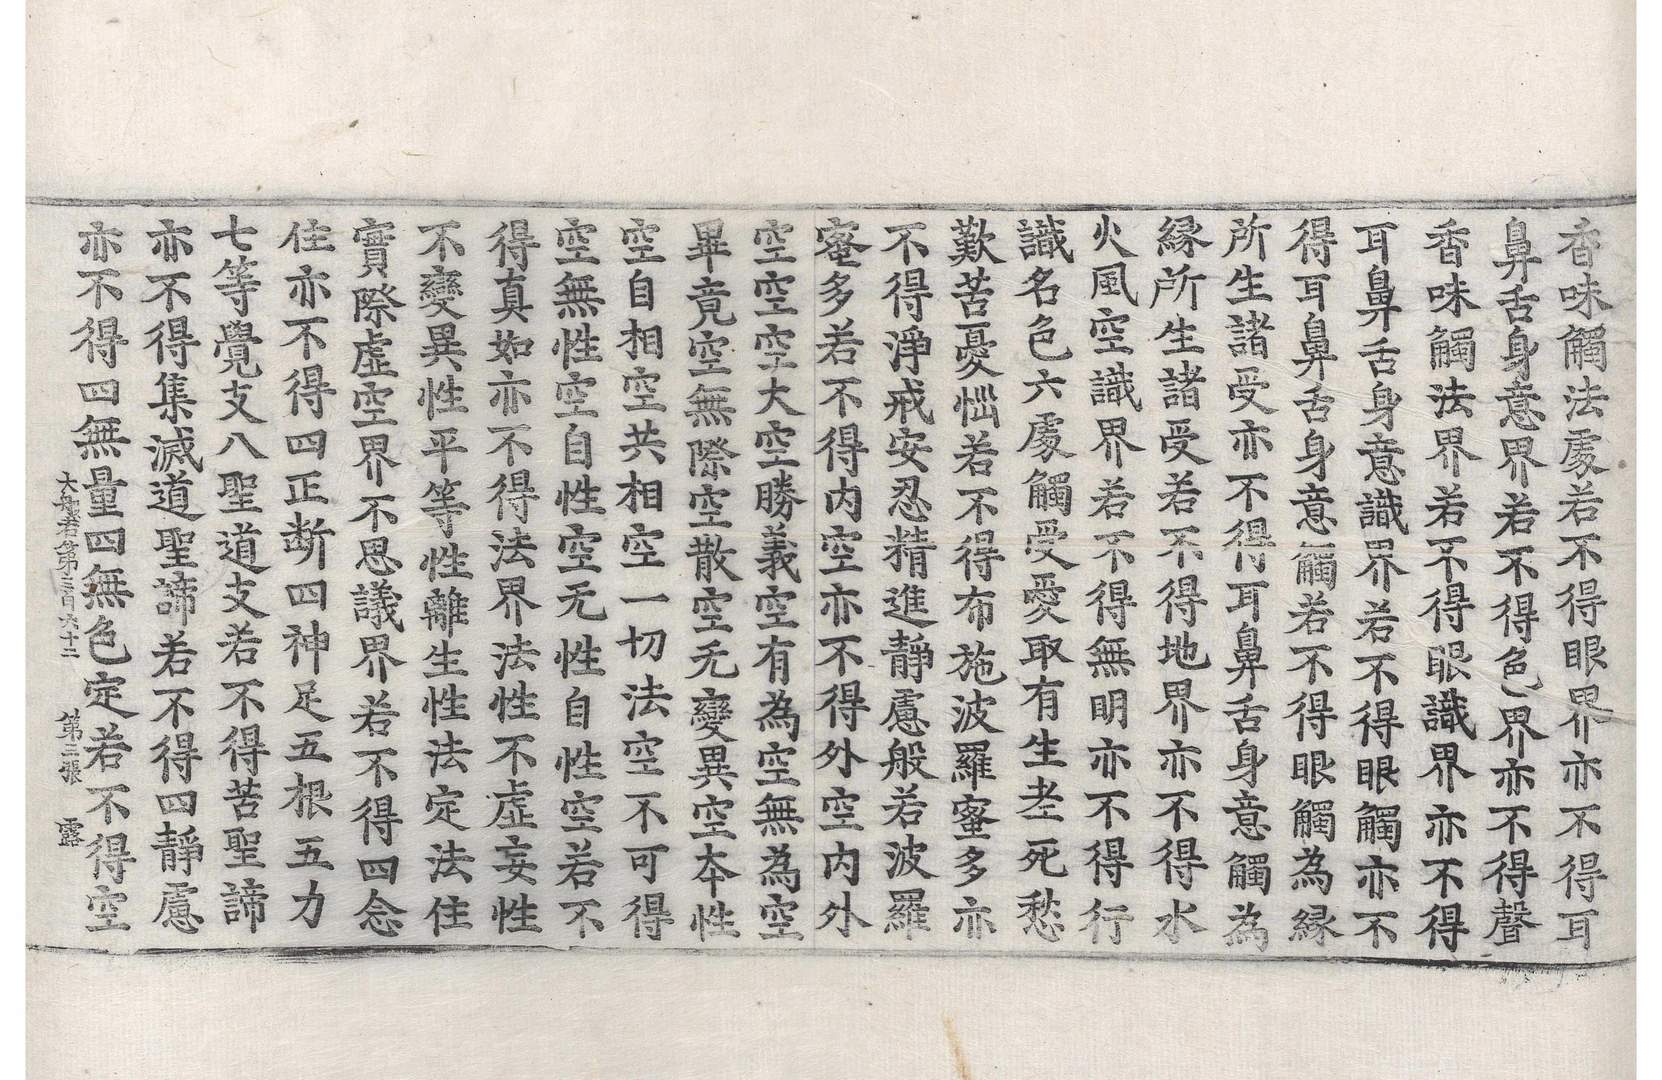 香味觸法處若不得眼界亦不得耳
鼻舌身意界若不得色界亦不得聲
香味觸法界若不得眼識界亦不得
耳鼻舌身意識界若不得眼觸亦不
得耳鼻舌身意觸若不得眼觸為緣
所生諸受亦不得耳鼻舌身意觸為
緣所生諸受若不得地界亦不得水
火風空識界若不得無明亦不得行
識名色六處觸受愛取有生老死愁
歎苦憂惱若不得布施波羅蜜多亦
不得淨戒安忍精進靜慮般若波羅
蜜多若不得內空亦不得外空內外
空空空大空勝義空有為空無為空
畢竟空無際空散空无變異空本性
空自相空共相空一切法空不可得
空無性空自性空无性自性空若不
得真如亦不得法界法性不虛妄性
不變異性平等性離生性法定法住
實際虛空界不思議界若不得四念
住亦不得四正斷四神足五根五力
七等覺支八聖道支若不得苦聖諦
亦不得集滅道聖諦若不得四靜慮
亦不得四無量四無色定若不得空
大般若第三百六十二 第三張 露